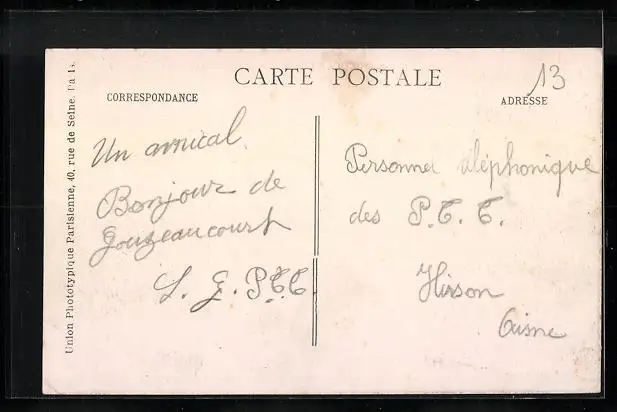 CARTE POSTALE
13
CORRESPONDANCE
ADRESSE
Union Phototypique Parisienne, 40, rue de Seine.
Un amical
Bonjour de
Gouzeaucourt
L. G. P.T.T.
Personnel téléphonique
des P.T.T.
Hirson
Aisne